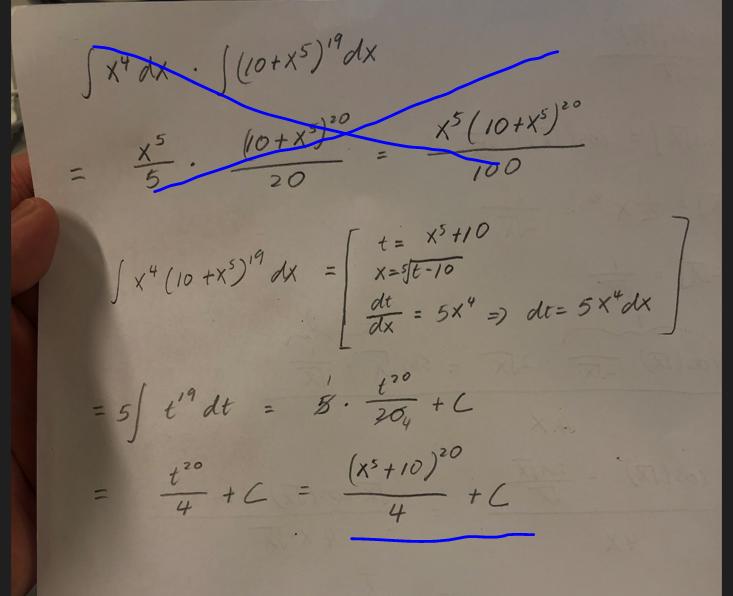 ∫ x⁴ dx · ∫ (10+x⁵)¹⁹ dx
= x⁵/5 · (10+x⁵)²⁰/20 = x⁵(10+x⁵)²⁰/100
∫ x⁴ (10+x⁵)¹⁹ dx = [
t = x⁵+10
x = ⁵√(t-10)
dt/dx = 5x⁴ => dt = 5x⁴dx
]
= 5∫ t¹⁹ dt = 5 1 · t²⁰/20 4 + C
= t²⁰/4 + C = (x⁵+10)²⁰/4 + C